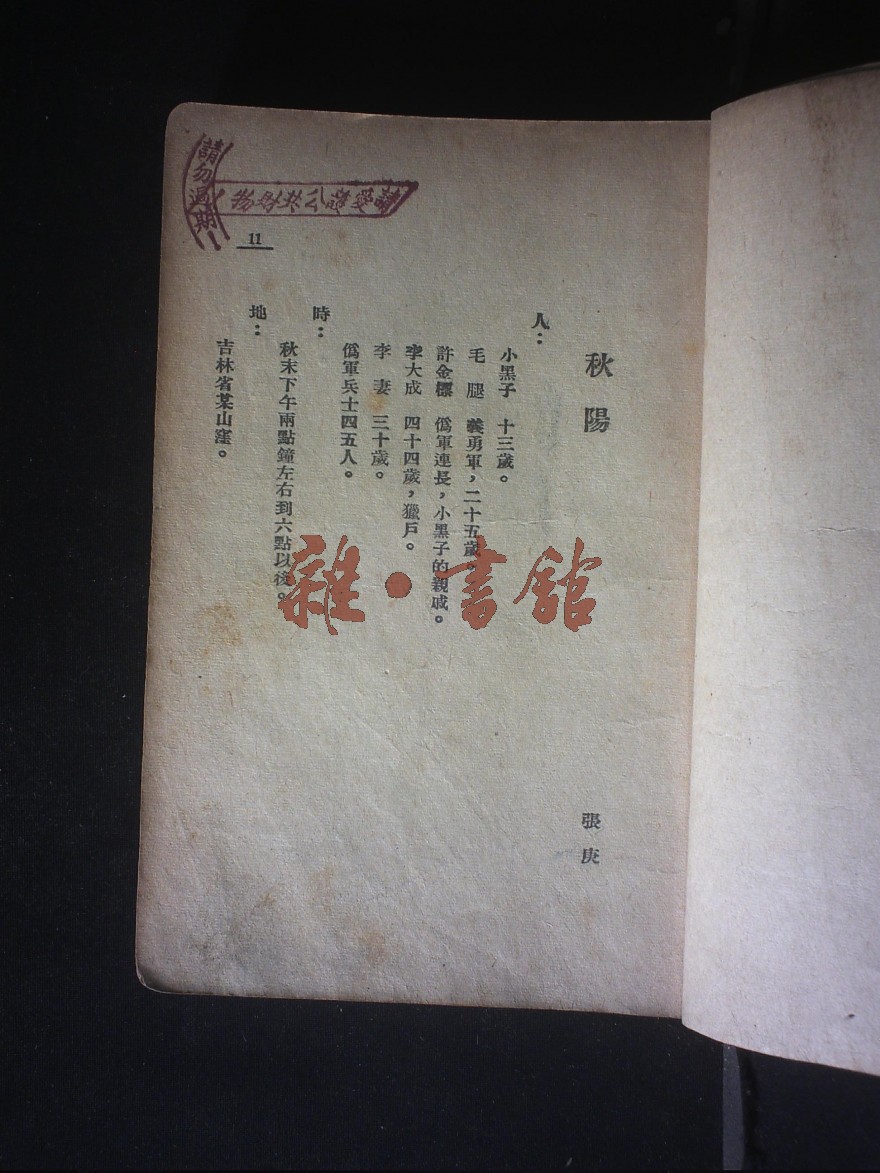 請勿過期！
請愛護公共財物
11
秋陽
張庚
人：
小黑子　十三歲。
毛　腿　義勇軍，二十五歲。
許金標　僞軍連長，小黑子的親戚。
李大成　四十四歲，獵戶。
李　妻　三十歲。
僞軍兵士四五人。
時：
秋末下午兩點鐘左右到六點以後。
地：
吉林省某山窪。
雜·書館